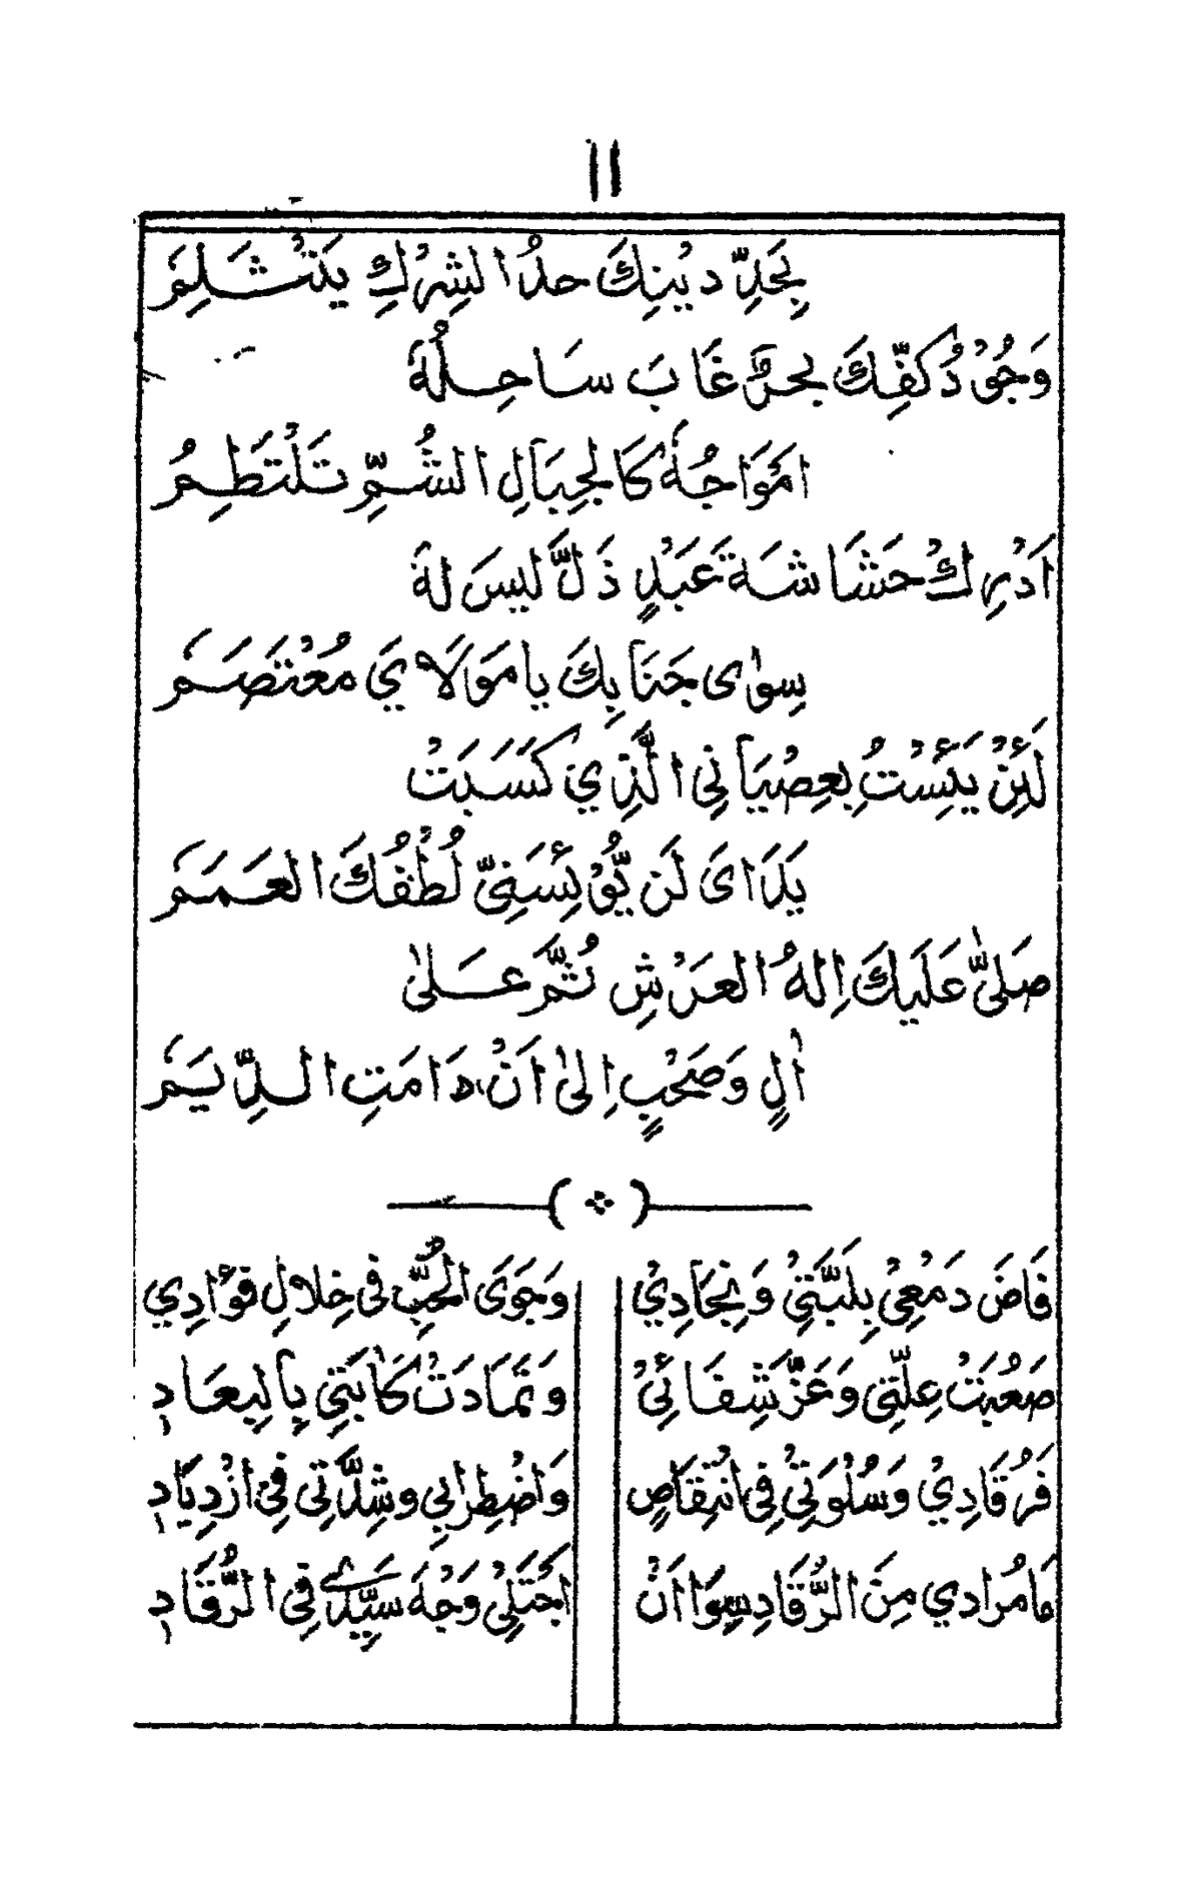 ١١
بِحَدِّ دِيْنِكَ حدُّ الشِرْكِ يَنْثَلِمُ
وَجُوْدُ كَفِّكَ بحرٌ غَابَ سَاحِلُهٗ
امَوَاجُهٗ كَالجِبَالِ الشُمِّ تَلْتَطِمُ
اَدْرِكْ حَشَاشَةَ عَبْدٍ ذَلَّ ليسَ لهٗ
سِوٰى جَنَابِكَ يا مَوَلَايَ مُعْتَصَمٗ
لَئِنْ يَئِسْتُ بِعِصْيَانِي الَّذِي كَسَبَتْ
يَدَاىَ لَن يُّوْئِسَنِىّ لُطْفُكَ العَمَمٗ
صَلىّٰ عَلَيكَ اِلهُ العَرْشِ ثُمَّ عَلىٰ
اٰلٍ وَصَحْبٍ اِلىٰ اَنْ دَامَتِ الدِّيَمٗ
فَاضَ دَمْعِيْ بِلَبَّتَيْ وَنِجَادِيْ
وَجَوَى الحُبِّ في خِلالِ فؤادِي
صَعُبَتْ عِلّتِي وَعَزَّ شِفَائيْ
وَتَمَادَتْ كَاٰبَتِي بِالبِعَادِ
فَرُقَادِيْ وَسُلْوَتيْ فِي انْتِقَاصٍ
وَاضْطِرابي وشِدَّتي فِي ازْدِيَادِ
مَا مُرادي مِنَ الرُّقَادِ سِوَا اَنْ
اَجْتَلِيْ وَجْهَ سَيِّدِيْ فِي الرُّقَادِ